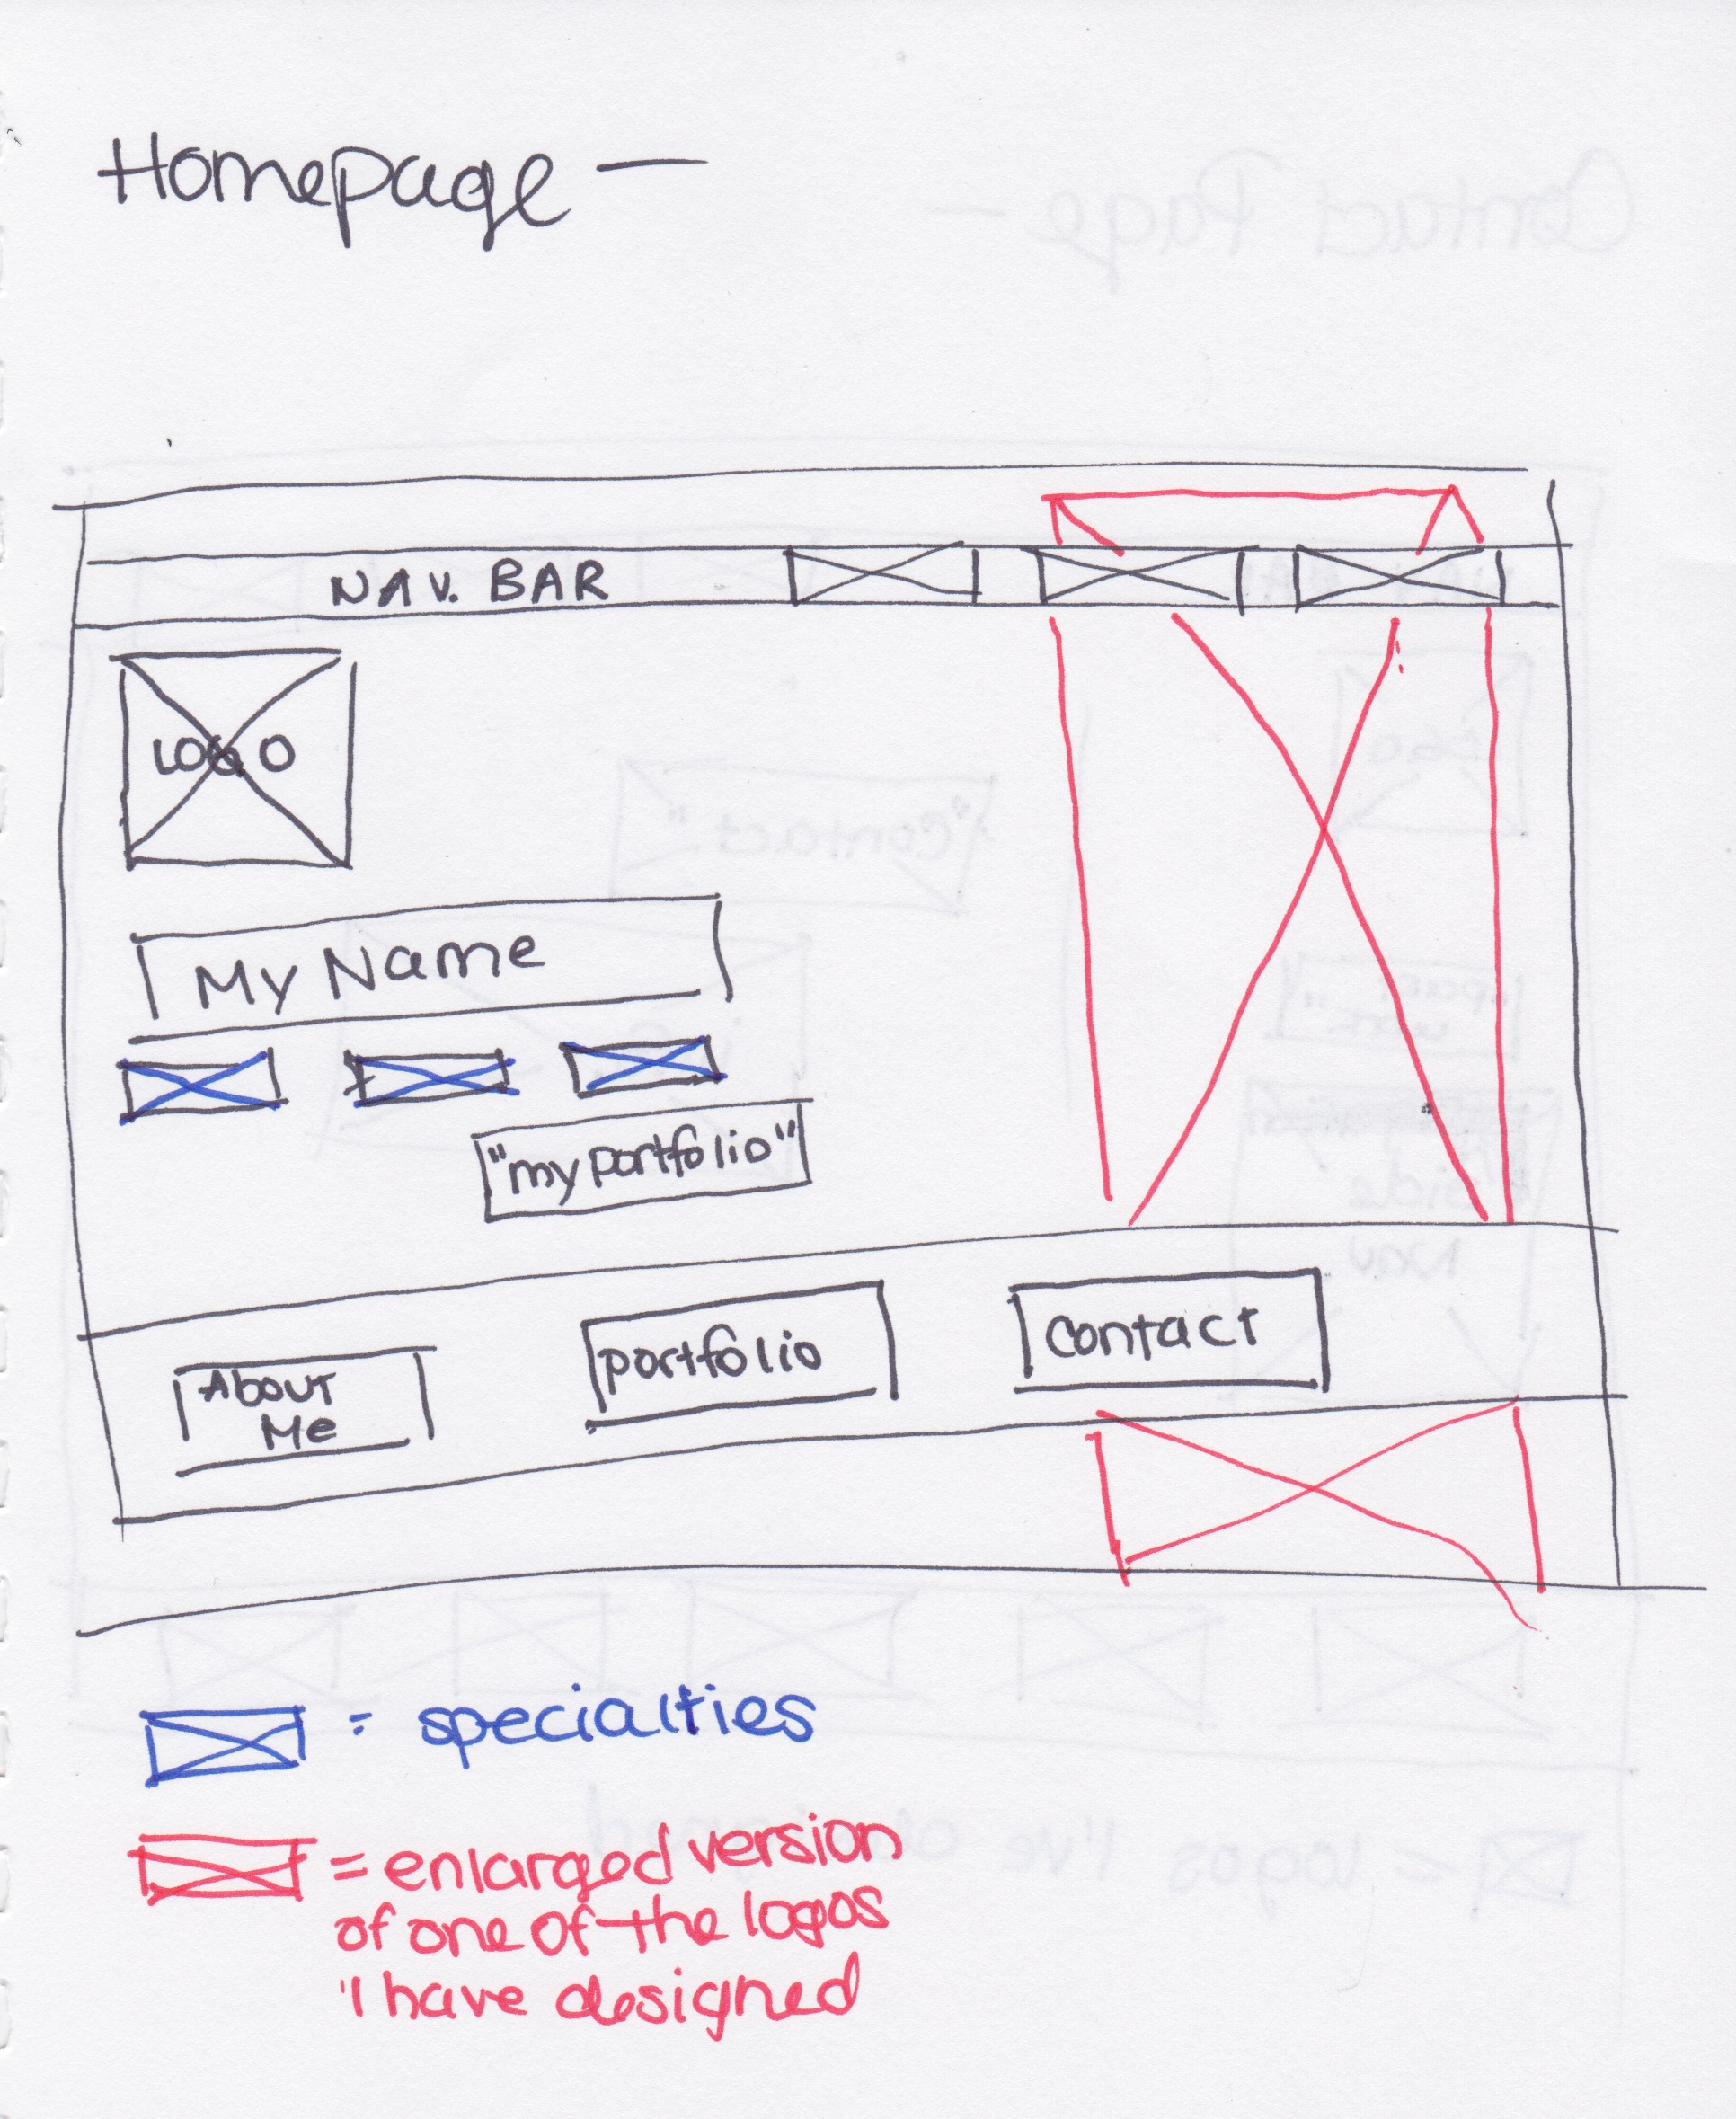 Homepage —
NAV. BAR
LOGO
My Name
"my portfolio"
About
Me
portfolio
contact
= specialties
= enlarged version
of one of the logos
I have designed